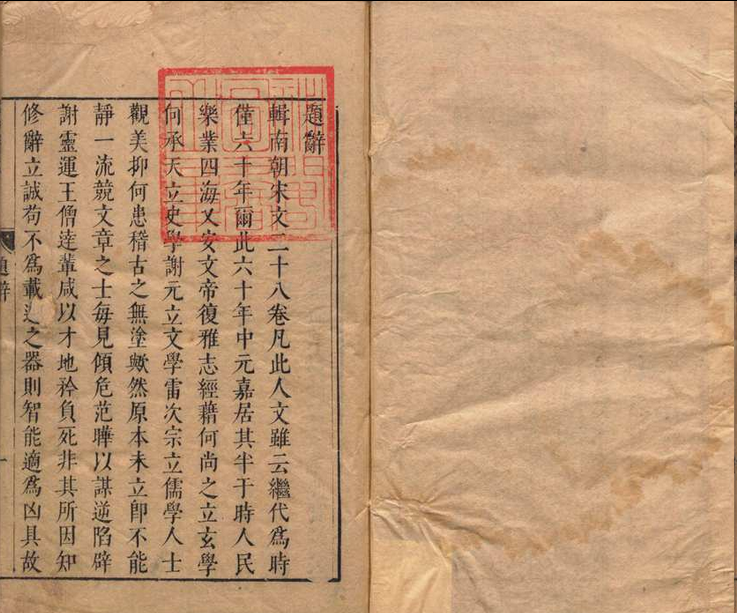 題辭
輯南朝宋文二十八卷凡此人文雖云繼代爲時
僅六十年爾此六十年中元嘉居其半于時人民
樂業四海乂安文帝復雅志經藉何尚之立玄學
何承天立史學謝元立文學雷次宗立儒學人士
觀美抑何患稽古之無塗歟然原本未立卽不能
靜一流競文章之士每見傾危范曄以謀逆陷辟
謝靈運王僧達輩咸以才地矜負死非其所因知
修辭立誠苟不爲載之器則智能適爲凶具故
題辭